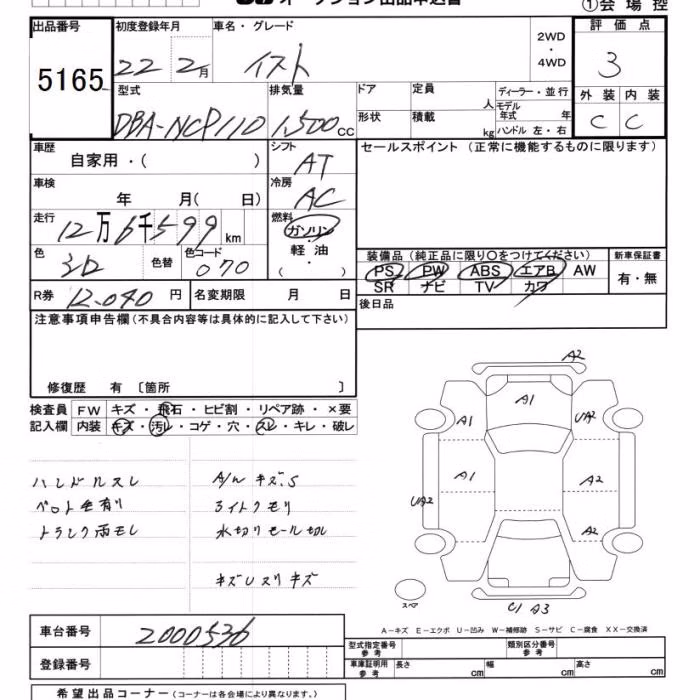 オークション出品申込書
①会場控
出品番号 初度登録年月 車名・グレード 2WD ・ 4WD 評価点
5165 22 2月 イスト 3
型式 排気量 ドア 定員 人 ディーラー・並行 外装 内装
DBA-NCP110 1,500cc 形状 積載 kg モデル年式 年 C C
ハンドル 左・右
車歴 自家用・( ) シフト AT セールスポイント (正常に機能するものに限ります)
車検 年 月( 日) 冷房 AC
走行 12万6千599km 燃料 ガソリン・軽油・( )
色 色替 色コード 070
装備品 (純正品に限り○をつけてください) 新車保証書
PS PW ABS エアB AW 有・無
SR ナビ TV カワ
R券 12,040円 名変期限 月 日 後日品
注意事項申告欄(不具合内容等は具体的に記入して下さい)
修復歴 有 〔箇所 〕
検査員 FW キズ・飛石・ヒビ割・リペア跡・×要
記入欄 内装 キズ・汚レ・コゲ・穴・スレ・キレ・破レ
ハンドルスレ A/W キズ.S
ベルト毛有り ライトクモリ
トランク雨モレ 水切りモール切レ
キズレスリキズ
A2
A1
A1 UA2
A1 A2
UA2
A2
スペア
C1 A3
A-キズ E-エクボ U-凹み W-補修跡 S-サビ C-腐食 XX-交換済
車台番号 2000536
型式指定番号 参考 類別区分番号 参考
登録番号 車庫証明用 参考 長さ cm 幅 cm 高さ cm
希望出品コーナー (コーナーは各会場により異なります。)